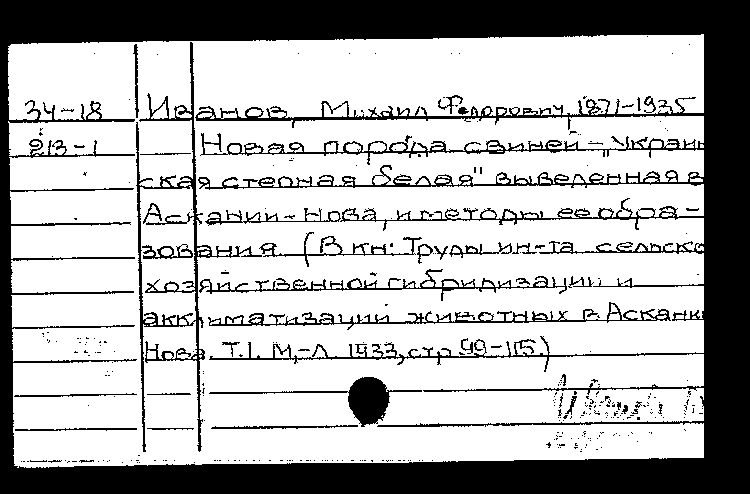 34-18 Иванов, Михаил Федорович, 1871-1935
213-1 Новая порода свиней-„Украин
ская степная белая" выведенная в
Аскании-Нова, и методы ее обра-
зования. (В кн: Труды ин-та сельско
хозяйственной гибридизации и
акклиматизации животных в Аскани
Нова. Т.I. М,-Л 1933, стр 99-115.)
Иванов